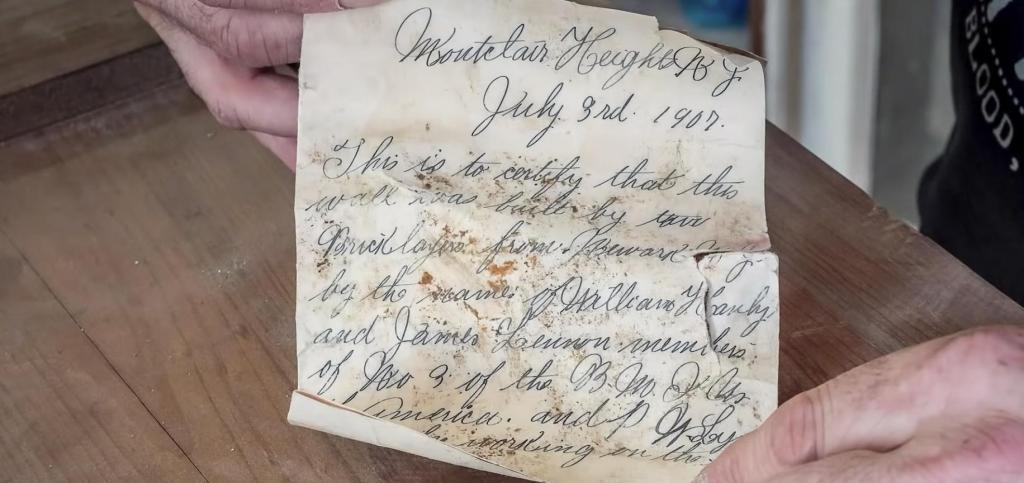 Montclair Heights N J
July 3rd. 1907.
This is to certify that this
wall was built by two
Bricklayers from Newark N. J.
by the names of William Hanly
and James Lennon members
of No 3 of the B. M. I. U.
America. and
working on the
BLOOD,